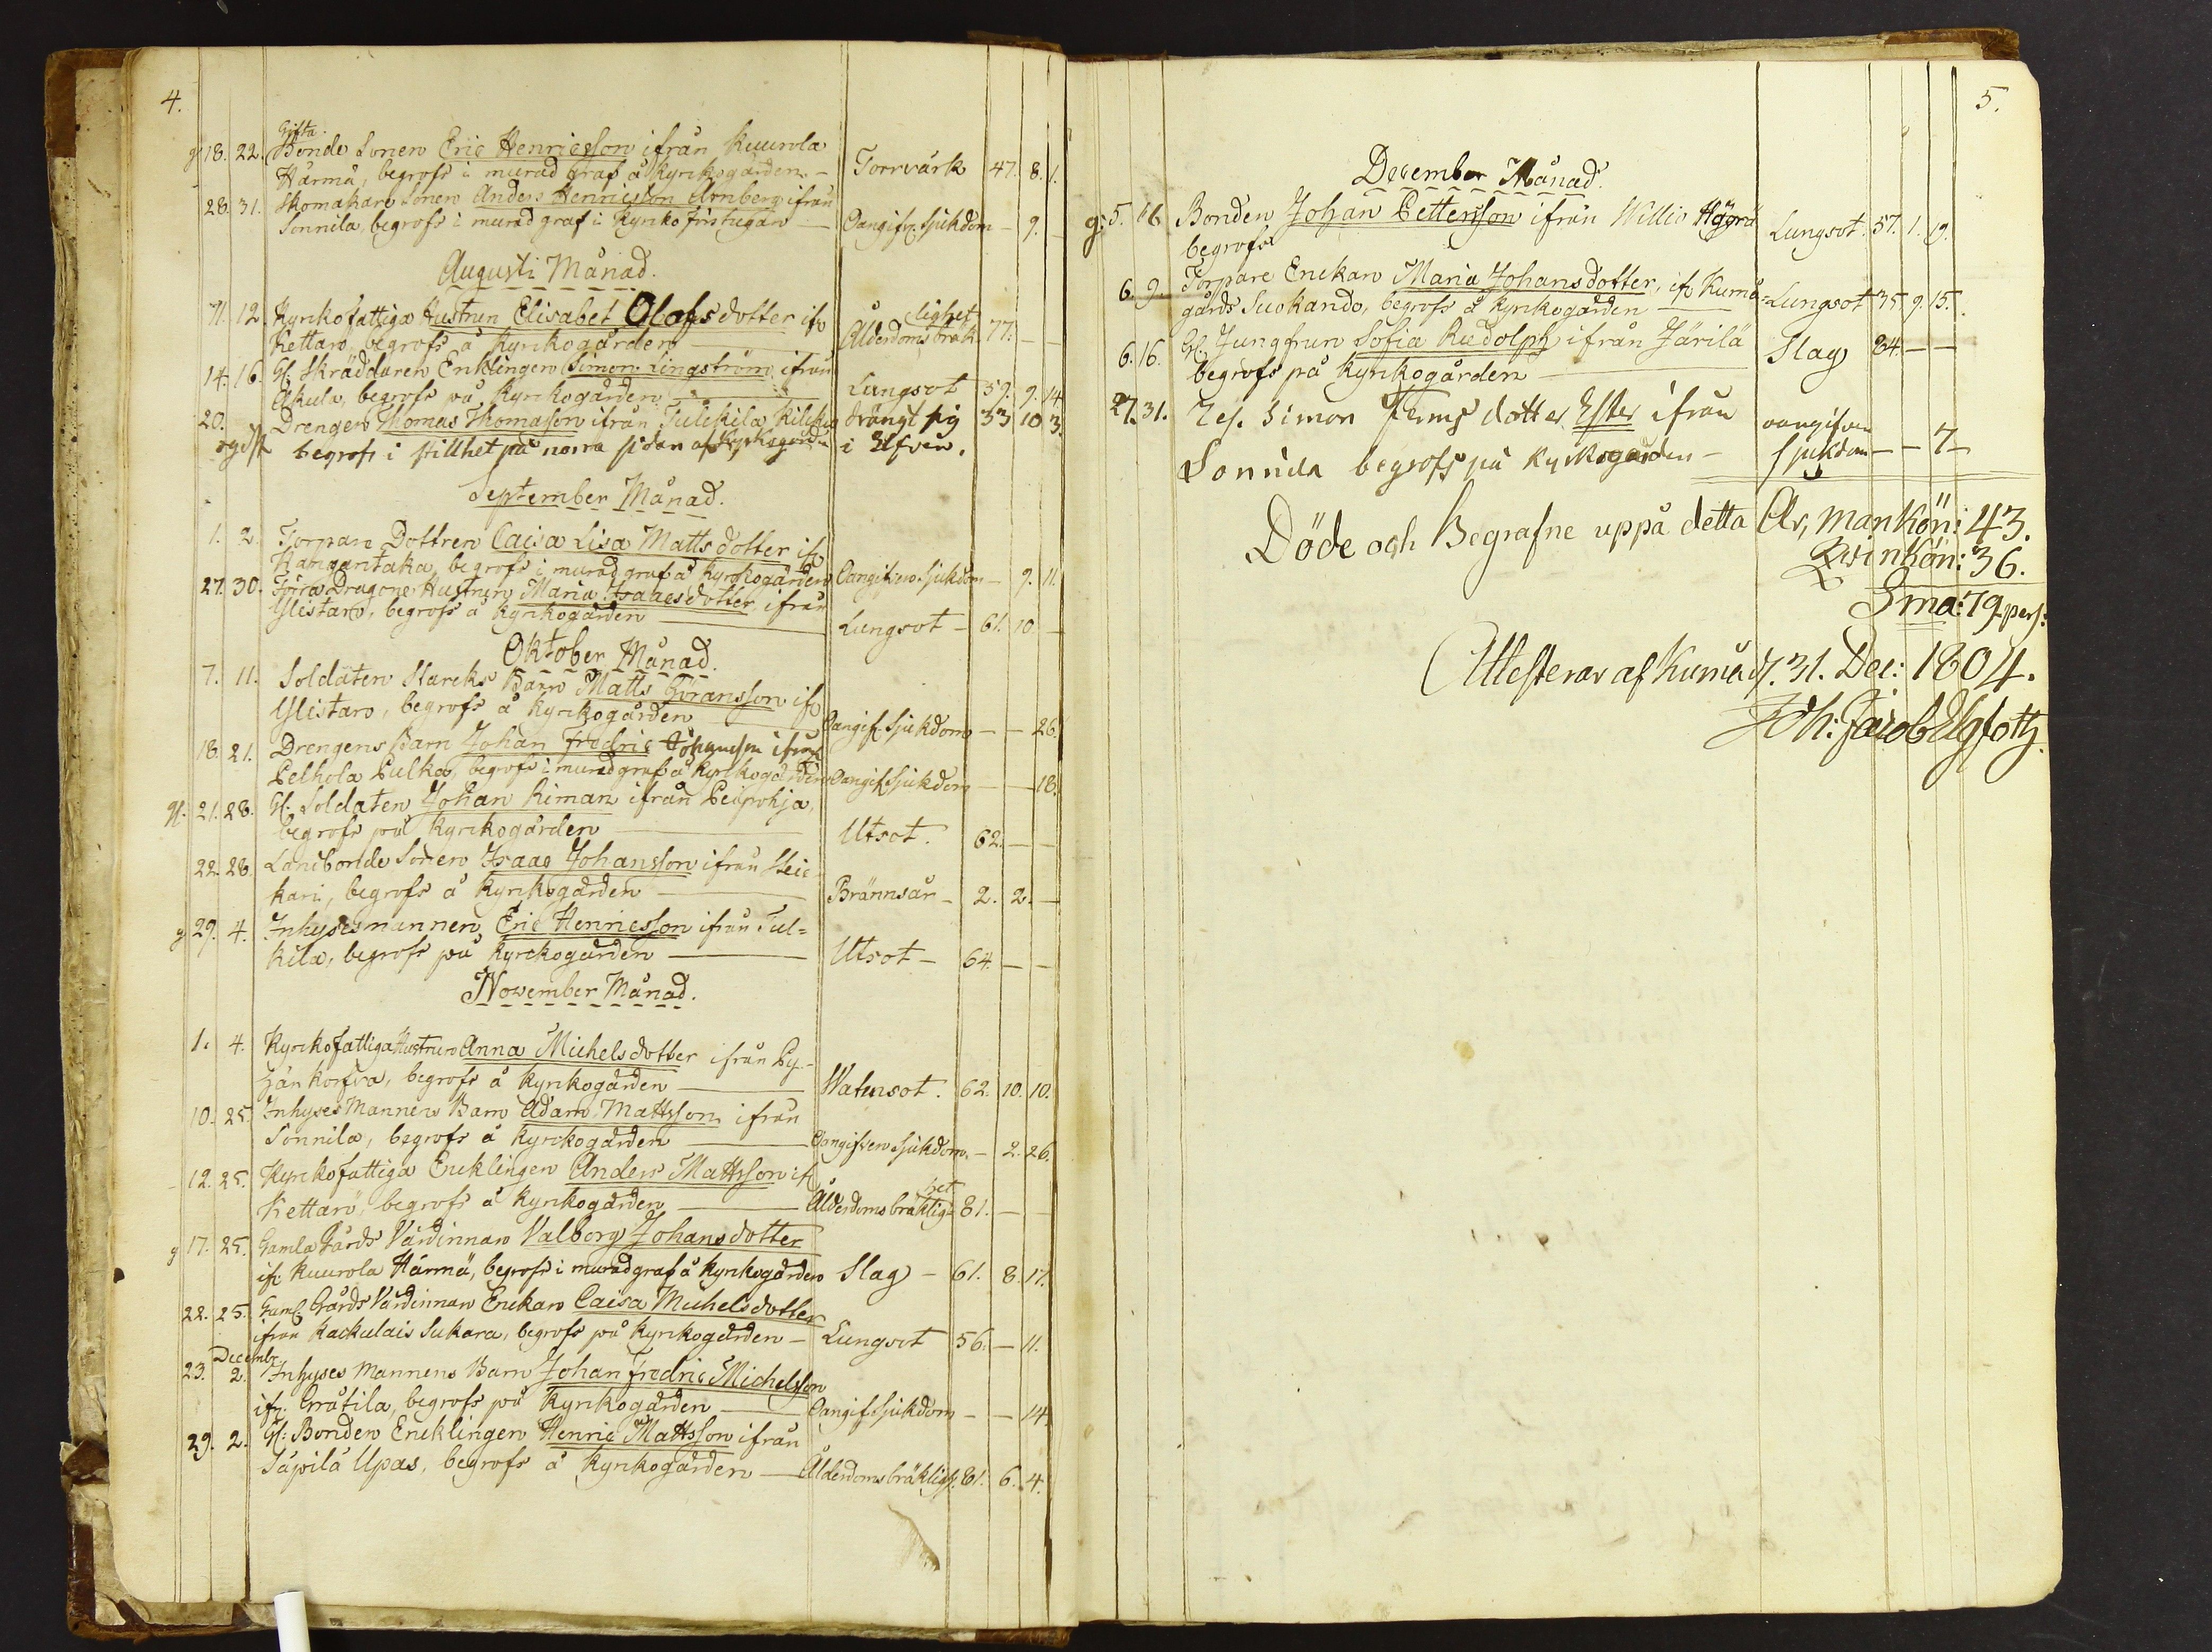 4.
Gifta.
g 18. 22. Bonde Sonen Eric Henricsson ifrån Kuurola
Härmä, begrofs i murad graf å kyrkogården. - Torrvärk 47. 8. 1.
28. 31. Skomakare Sonen Anders Henricsson Arnberg ifrån
Sonnila, begrofs i murad graf i Kyrko förstugan - Oangifv. Sjukdom - 9. -
Augusti Månad.
11. 12. Kyrkofattiga Hustrun Elisabet Olofsdotter ifr
Kettaro, begrofs å kyrkogården - Ålderdoms bräk lighet 77. - -
14. 16. Gl. Skräddaren Enklingen Simon Lingström ifrån
Akula, begrofs på kyrckogården - Lungsot 59. 9. 14
20. Drengen Thomas Thomasson ifrån Tulkkila Kilkku drängt sig 33 10 3.
begrofs i stillhet på norra sidan af Kyrkogården i Elfven.
September Månad.
1. 2. Torpare Dottren Caisa Lisa Mattsdotter ifr
Kangantaka, begrofs i murad graf å kyrkogården Oangifven Sjukdom - 9. 11.
27. 30. Förra Dragone Hustrun Maria Isaacsdotter ifrån
Ylistaro, begrofs å kyrkogården - Lungsot - 61. 10 -
Oktober Månad.
7. 11. Soldaten Starcks Barn Matts Göransson ifr
Ylistaro, begrofs å kyrkogården - Oangif. Sjukdom - - 26.
18. 21. Drengens Barn Johan Fredric Johansson ifrån
Pelhola Pulka, begrofs i murad graf å kyrckogården Oangif. Sjukdom - - 18.
g. 21. 28. Gl. Soldaten Johan Riman ifrån Peipohja,
begrofs på kyrckogården - Utsot. 62. - -
22. 28. Landbonde Sonen Isaac Johansson ifrån Heic
kari, begrofs å kyrckogården - Brännsår - 2. 2. -
g 29. 4. Inhysesmannen Eric Henricsson ifrån Tul=
kila, begrofs på kyrckogården - Utsot - 64. - -
November Månad.
1. 4. Kyrckofattiga Hustrun Anna Michelsdotter ifrån Py-
hän korfva, begrofs å kyrkogården - Watnsot. 62. 10. 10.
10. 25. Inhyses Mannens Barn Adam Mattsson ifrån
Sonnila, begrofs å kyrckogården - Oangifven Sjukdom. - 2. 26.
12. 25. Kyrckofattiga Encklingen Anders Mattsson ifr
Kettaro, begrofs å kyrkogården - Ålderdoms bräklig het 81. - -
g 17. 25. Gamla Gårds Värdinnan Valborg Johansdotter
ifr. Kuurola Härmä, begrofs i murad graf å kyrkogården Slag - 61. 8. 17.
22. 25. Gaml. Gårds Värdinnan Enckan Caisa Michelsdotter
ifrån Kackulais Sukara, begrofs på kyrkogården - Lungsot 56. - 11.
Decembr
23. 2. Inhyses Mannens Barn Johan Fredric Michelsson
ifr. Gråtila, begrofs på kyrkogården - Oangif. Sjukdom - - 14.
29. 2. Gl: Bonden Encklingen Henric Mattsson ifrån
Säpilä Upas, begrofs å kyrkogården - Ålderdoms bräkligh. 81. 6. 4.
5.
December Månad.
g: 5. 16 Bonden Johan Pettersson ifrån Willio
begrofs Lungsot. 57. 1. 19.
6. 9. Torpare Enckan Maria Johansdotter, ifr. Kumo=
gårds Suokando, begrofs å kyrkogården - Lungsot 35 9. 15.
6. 16. Gl. Jungfrun Sofia Rudolph ifrån Järilä
begrofs på kyrkogården - Slag 84. - -
27. 31. Simon dotter Ester ifrån
Sonnila begrofs på kyrkogården - oangifven sjukdom - - 7 -
Döde och Begrafne uppå detta År, Mankön: 43.
Qvinkön: 36.
Sma: 79 pers:
Attesterar af Kumå d. 31. Dec: 1804.
Joh: Jacob Elgfoth.